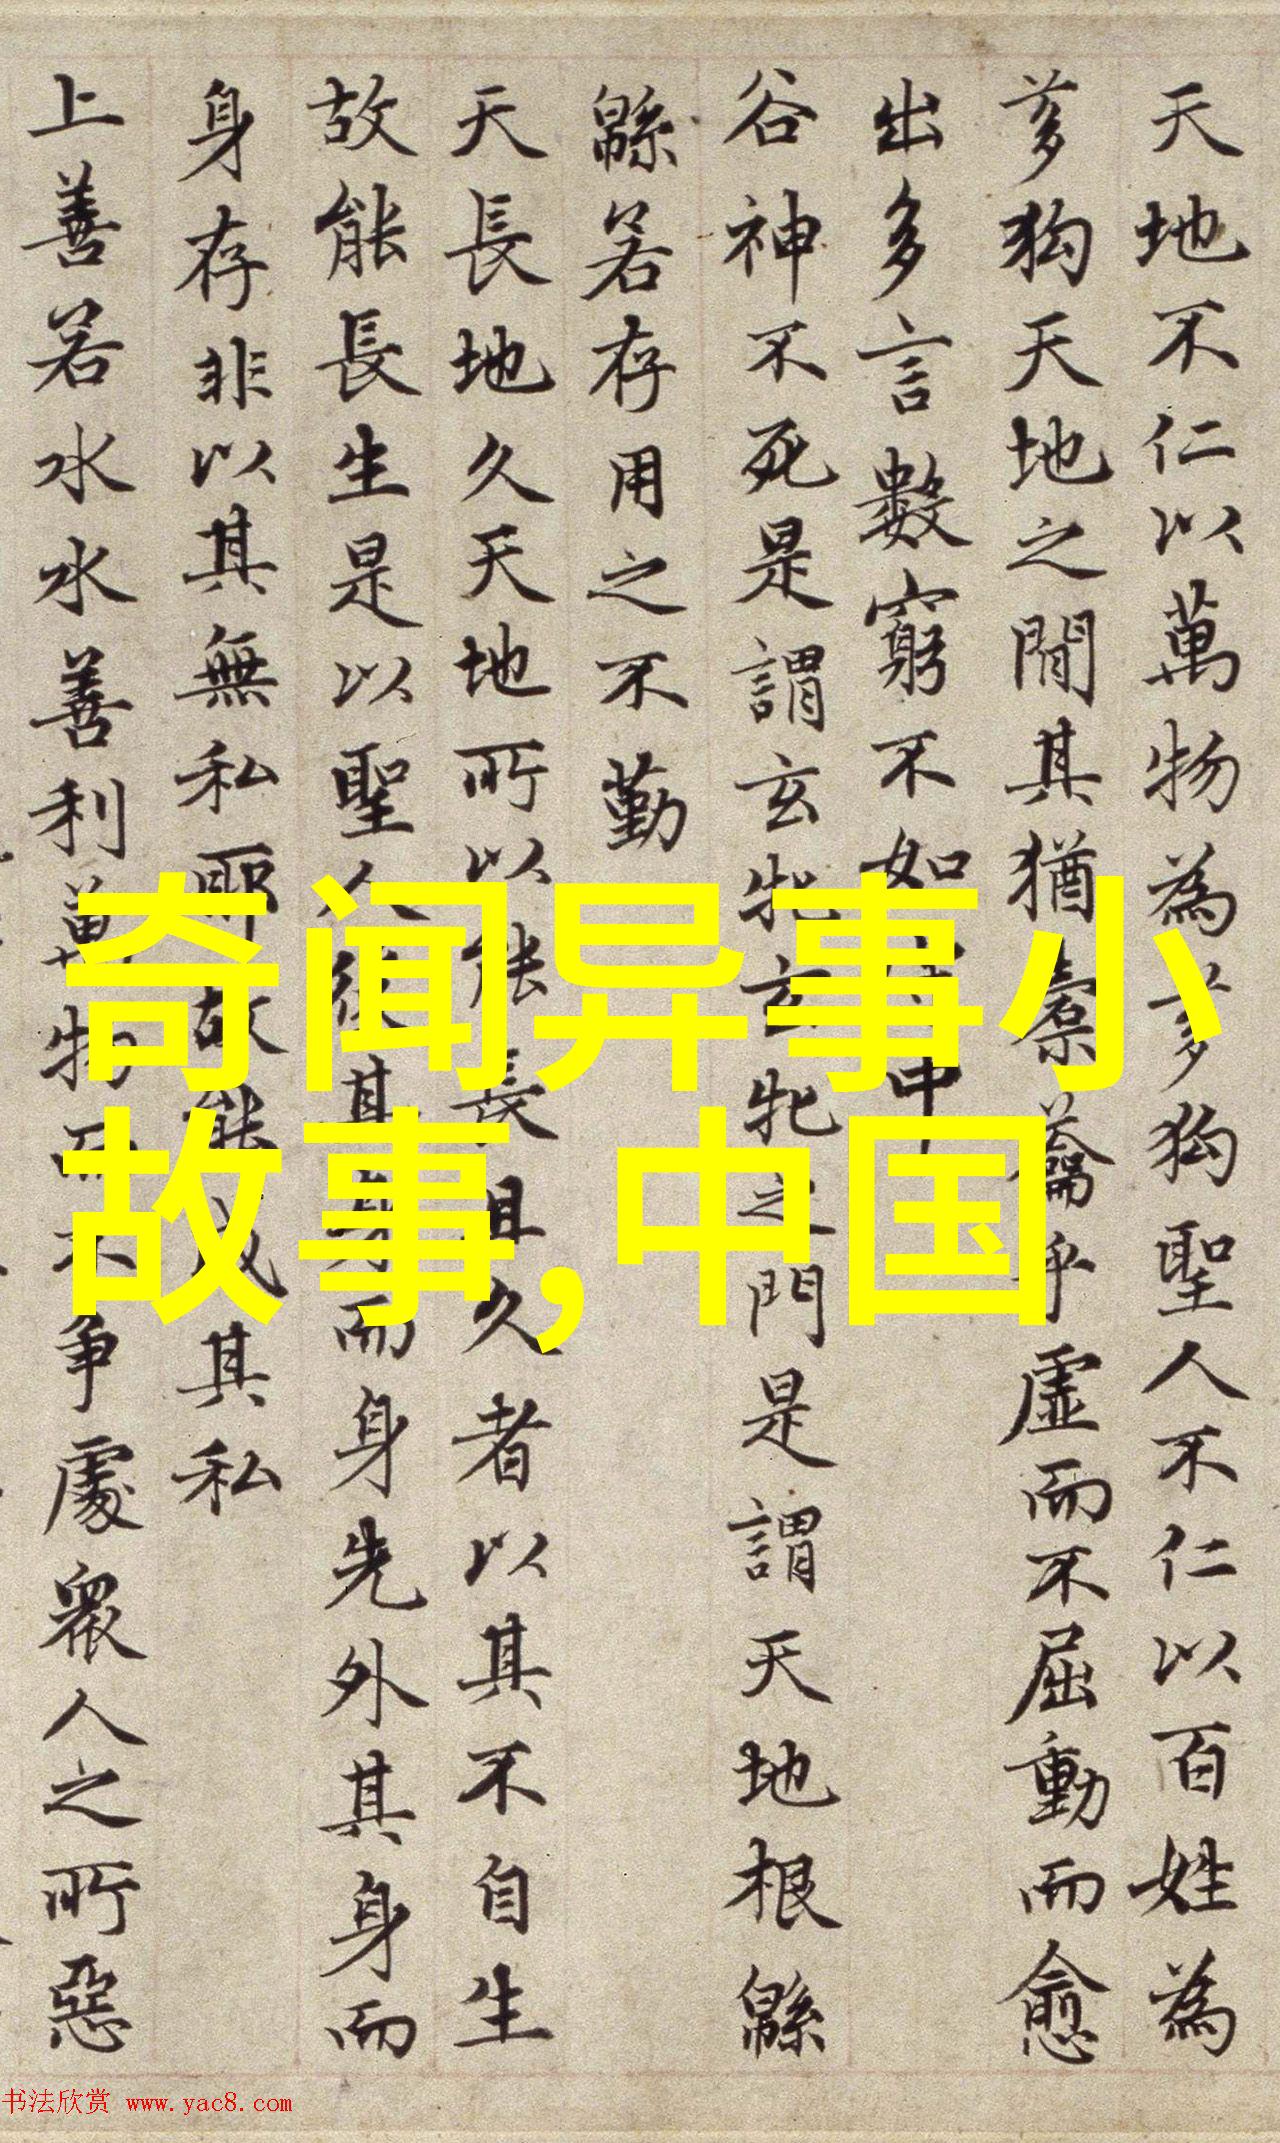 天地不仁以萬物為芻狗聖人不仁以百姓為
芻狗天地之間其猶橐籥乎虛而不屈動而愈
出多言數窮不如守中
谷神不死是謂玄牝玄牝之門是謂天地根緜
緜若存用之不勤
天長地久天地所以能長且久者以其不自生
故能長生是以聖人後其身而身先外其身而
身存非以其無私耶故能成其私
上善若水水善利萬物而不爭處衆人之所惡
奇闻异事小
故事,中国
书法欣赏 www.yac8.com